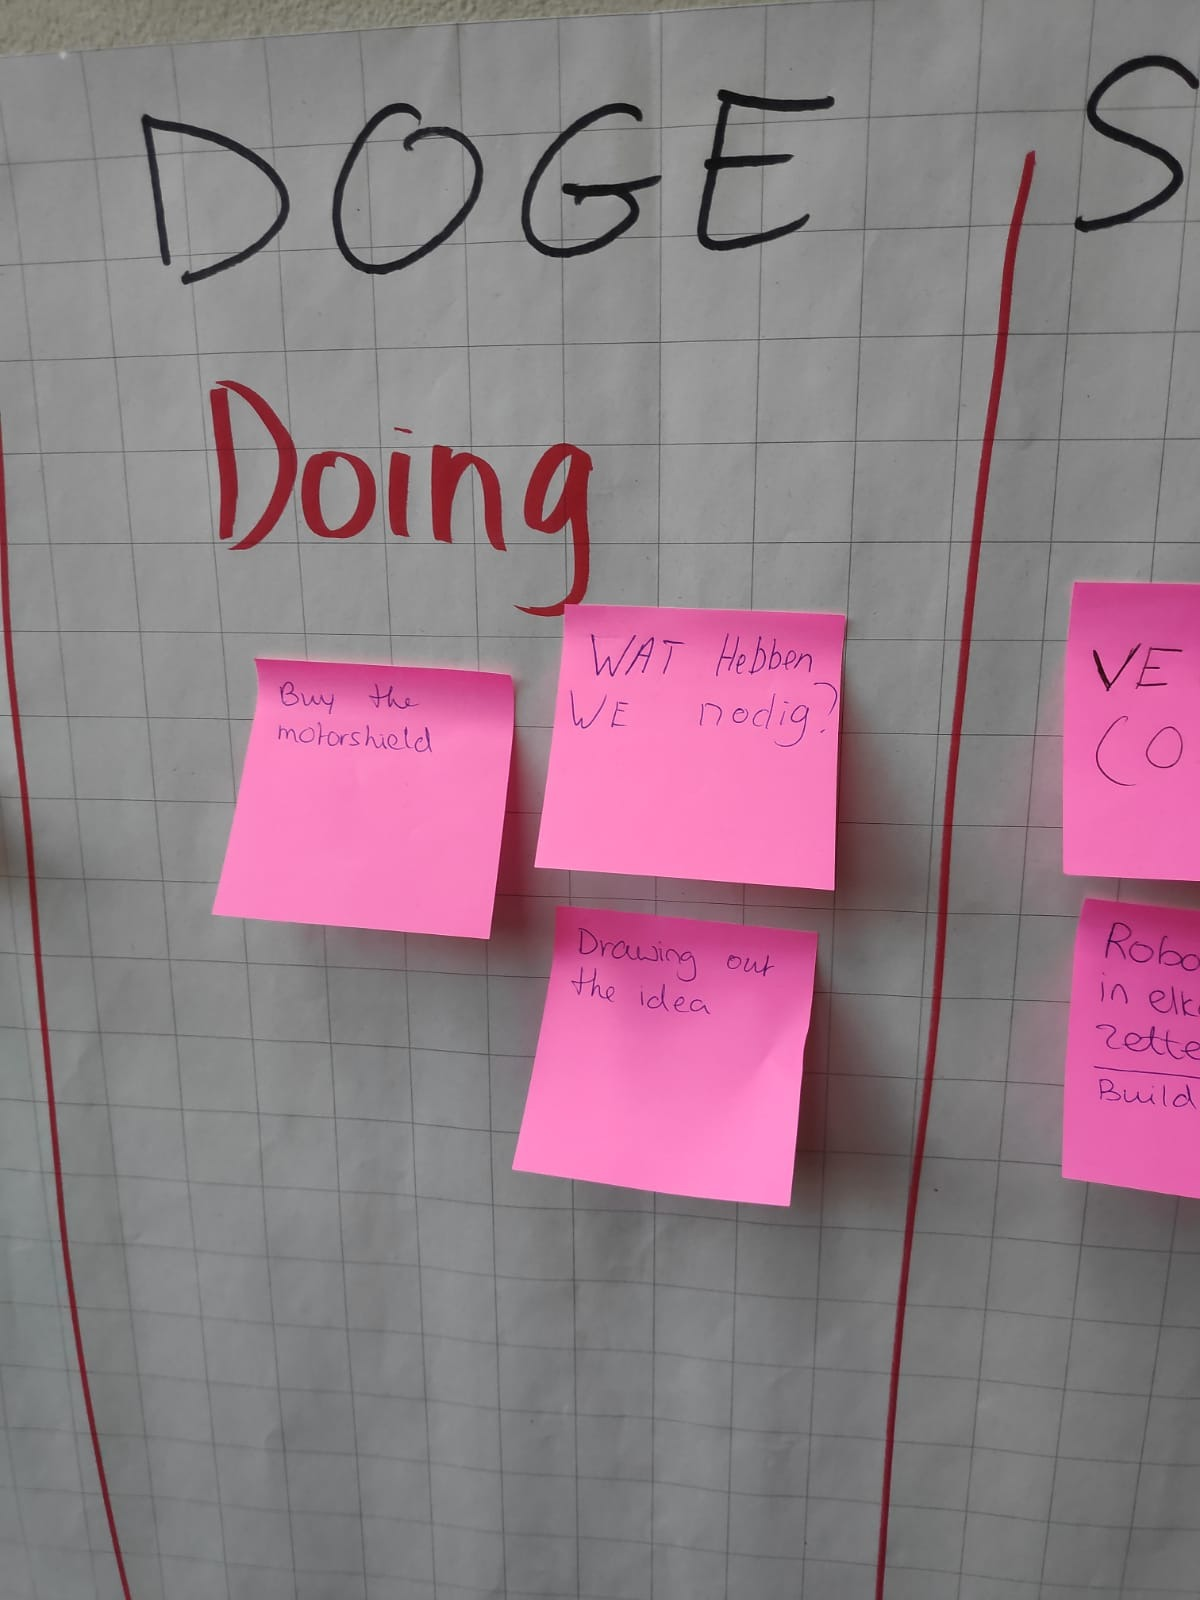 DOGE S
Doing
Buy the
motorshield
WAT Hebben
WE nodig?
Drawing out
the idea
VE
CO
Robo
in elk
zette
Build